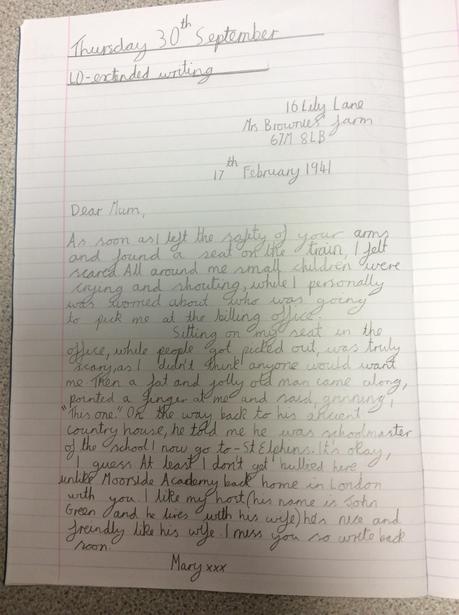 Thursday 30th September
LO-extended writing
16 Lily Lane
Mrs Brownies' farm
67M 8LB
17th February 1941
Dear Mum,
As soon as I left the safty of your arms
and found a seat on the train, I felt
scared. All around me small children were
crying and shouting, while I personally
was worried about who was going
to pick me at the billing office.
Sitting on my seat in the
office, while people got picked out, was truly
scary, as I didn't think anyone would want
me. Then a fat and jolly old man came along,
pointed a finger at me and said, grinning,
"This one." On the way back to his ancient
country house, he told me he was schoolmaster
of the school I now go to - St Elphins. It's okay,
I guess. At least I don't get bullied here
unlike Moorside Academy back home in London
with you. I like my host (his name is John
Green and he lives with his wife) he's nise and
freindly like his wife. I miss you so write back
soon.
Mary xxx